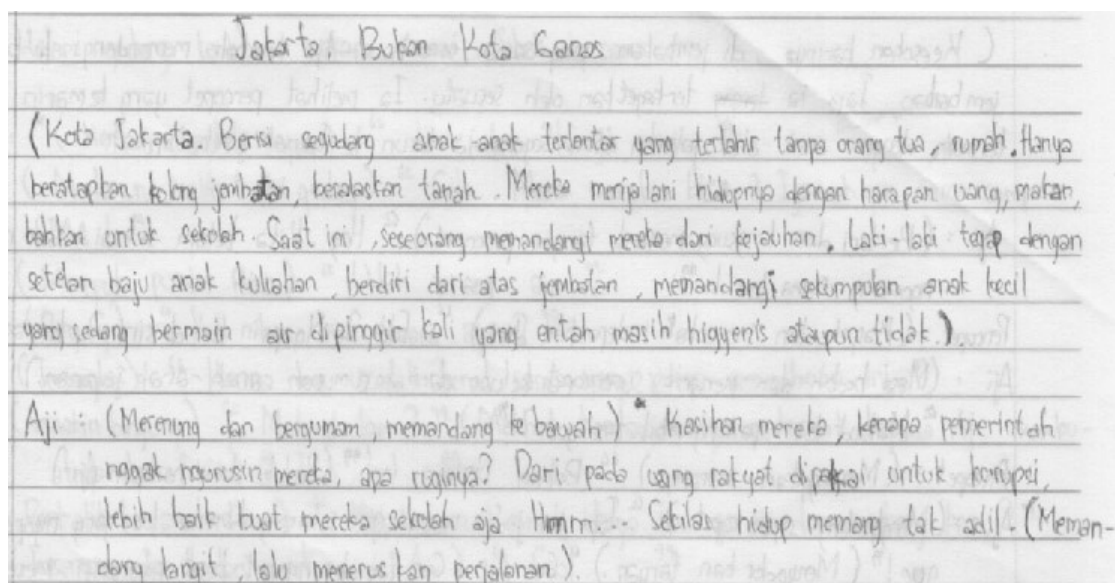 Jakarta, Bukan Kota Ganas
(Kota Jakarta. Berisi segudang anak anak terlantar yang terlahir tanpa orang tua, rumah. Hanya
beratapkan kolong jembatan, beralaskan tanah. Mereka menjalani hidupnya dengan harapan uang, makan,
bahkan untuk sekolah. Saat ini, seseorang memandangi mereka dari kejauhan. Laki-laki tegap dengan
setelan baju anak kuliahan, berdiri dari atas jembatan, memandangi sekumpulan anak kecil
yang sedang bermain air dipinggir kali yang entah masih higyenis ataupun tidak.)
Aji : (Merenung dan bergumam, memandang ke bawah) "Kasihan mereka, kenapa pemerintah
nggak ngurusin mereka, apa ruginya? Dari pada uang rakyat dipakai untuk korupsi,
lebih baik buat mereka sekolah aja Hmm... Sekilas hidup memang tak adil. (Meman-
dang langit, lalu meneruskan perjalanan).